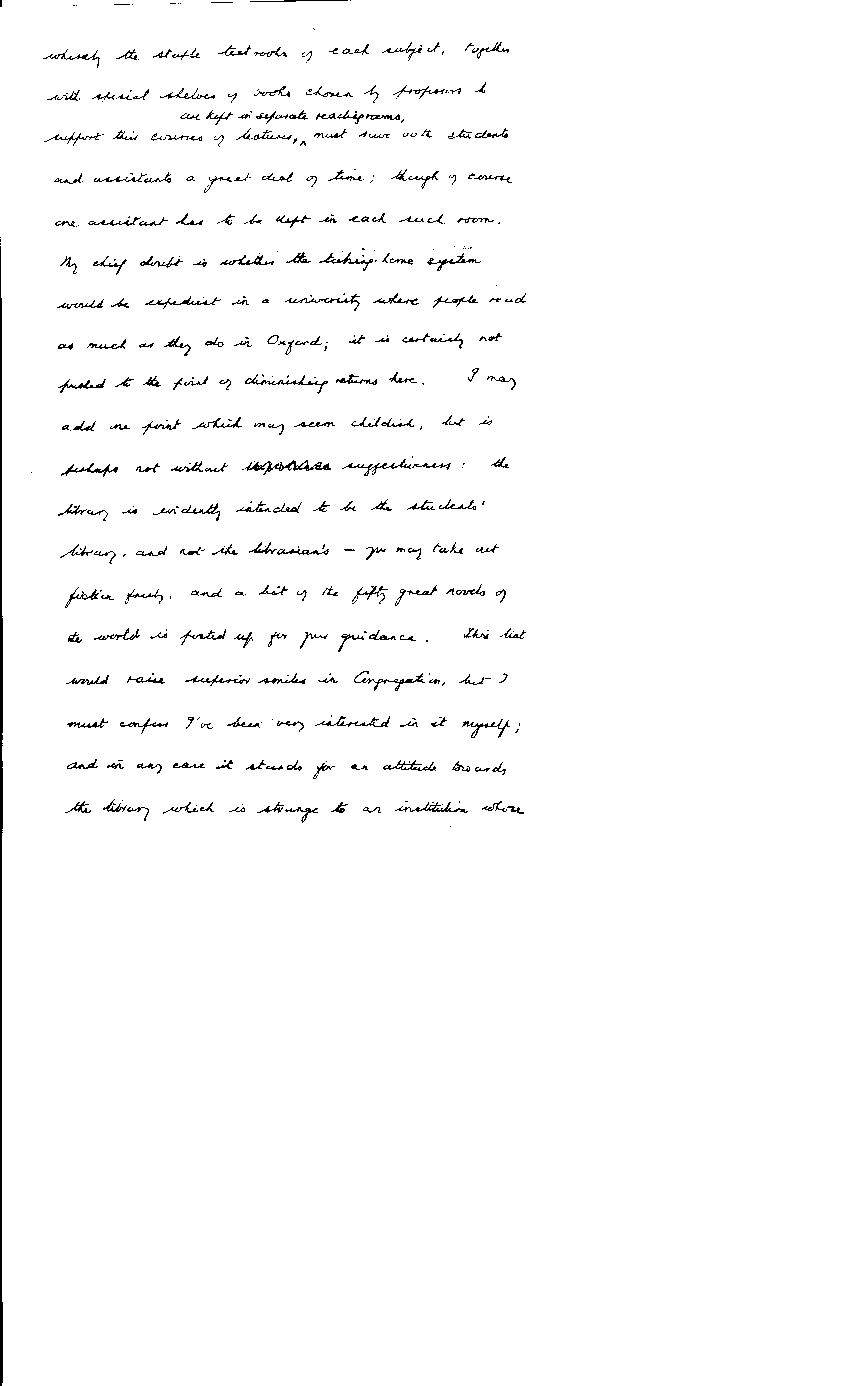 whereby the staple textbooks of each subject, together
with special shelves of books chosen by professors to
are kept in separate reading rooms,
support their courses of lectures, ^ must save both students
and assistants a great deal of time; though of course
one assistant has to be kept in each such room.
My chief doubt is whether the taking-home system
would be expedient in a university where people read
as much as they do in Oxford; it is certainly not
pushed to the point of diminishing returns here. I may
add one point which may seem childish, but is
perhaps not without suggestiveness: the
library is evidently intended to be the students'
library, and not the librarian's – you may take out
fiction freely, and a list of the fifty great novels of
the world is posted up for your guidance. This list
would raise superior smiles in Congregation, but I
must confess I've been very interested in it myself;
and in any case it stands for an attitude towards
the library which is strange to an institution whose